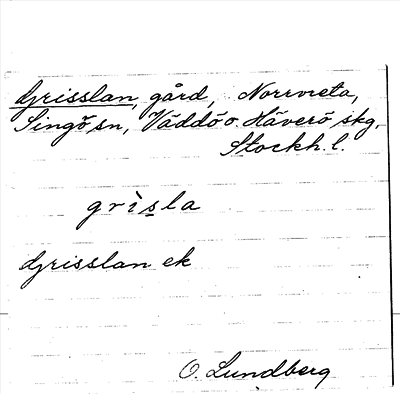 Grisslan, gård, Norrvreta,
Singö sn, Väddö o. Häverö skg.
Stockh. l.
grìsla
Grisslan ek
O. Lundberg